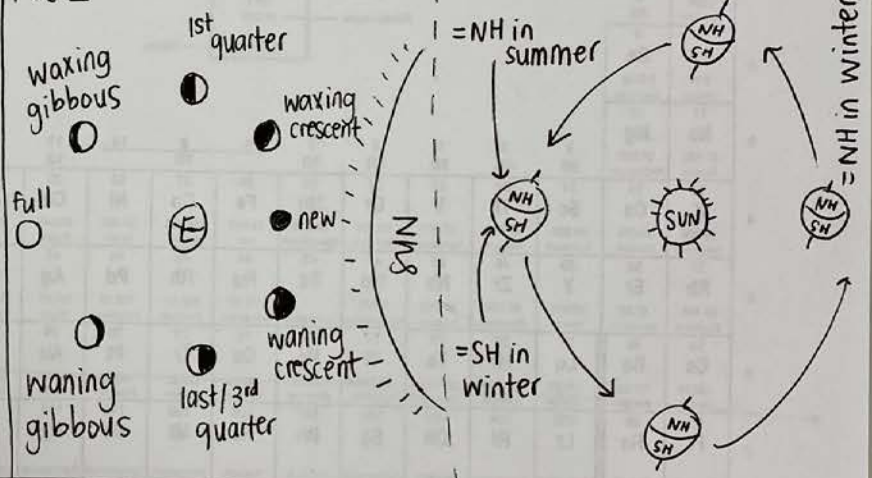 1st
quarter
waxing
gibbous
waxing
crescent
full
E
new
waning
crescent
waning
gibbous
last/3rd
quarter
SUN
=NH in
summer
=SH in
winter
NH
SH
NH
SH
SUN
NH
SH
NH
SH
=NH in winter